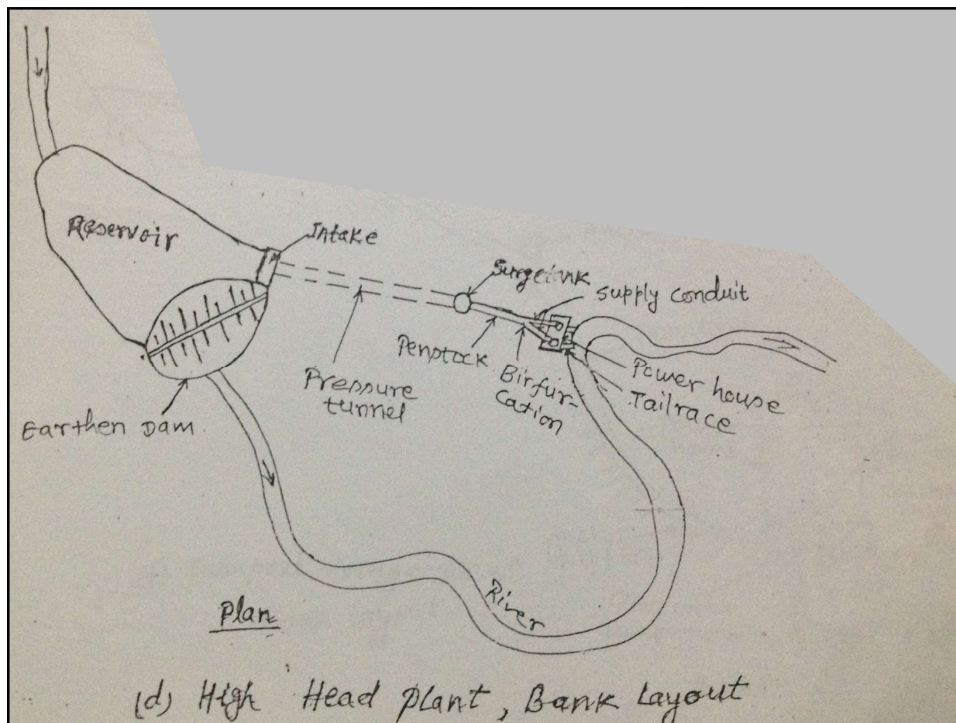 Reservoir
Intake
Surgetank
Supply conduit
Penstock
Birfur-
cation
Pressure
tunnel
Power house
Tailrace
Earthen Dam
River
Plan
(d) High Head Plant, Bank Layout